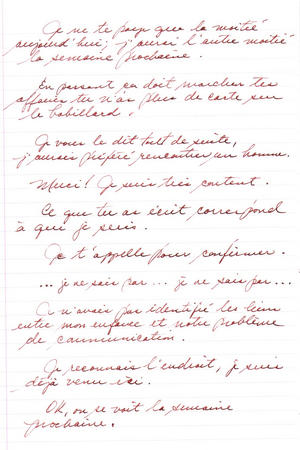 Je ne te paye que la moitié
aujourd'hui; j'aurai l'autre moitié
la semaine prochaine.
En passant ça doit marcher tes
affaires tu n'as plus de carte sur
le babillard.
Je vous le dit tout de suite,
j'aurais préféré rencontrer un homme.
Merci! Je suis très content.
Ce que tu as écit correspond
à qui je suis.
Je t'appelle pour confirmer.
... je ne sais pas ... je ne sais pas ...
Je n'avais pas identifié les liens
entre mon enfance et notre problème
de communication.
Je reconnais l'endroit, je suis
déjà venu ici.
OK, on se voit la semaine
prochaine.